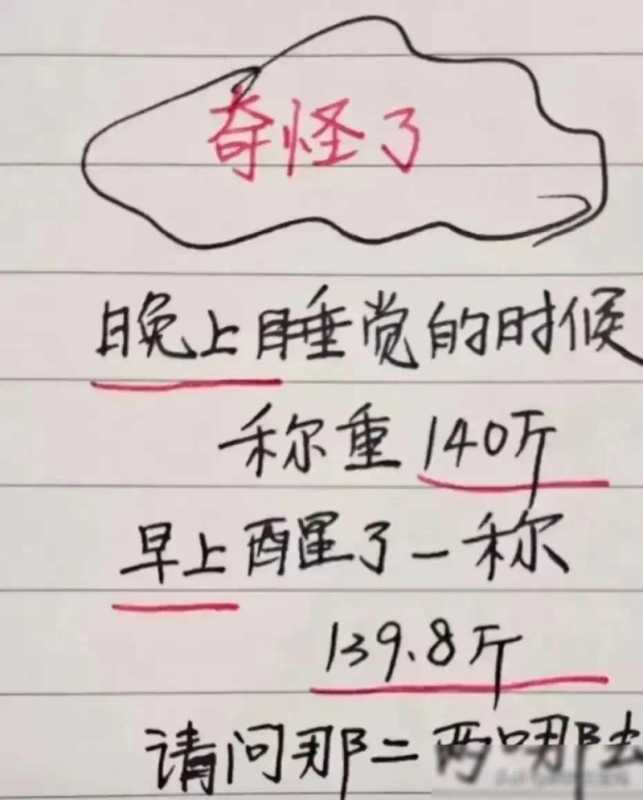 奇怪了
晚上睡觉的时候
称重140斤
早上醒了一称
139.8斤
请问那二两哪去